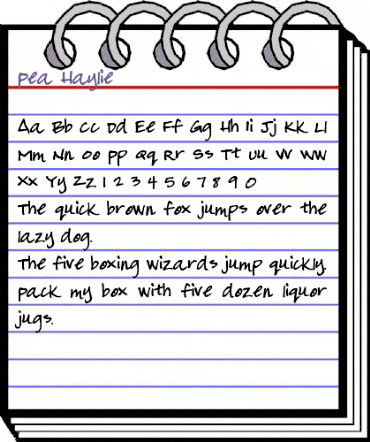 pea Haylie
Aa Bb Cc Dd Ee Ff Gg Hh Ii Jj KK Ll
Mm Nn oo pp Qq Rr Ss Tt uu vv ww
Xx Yy Zz 1 2 3 4 5 6 7 8 9 0
The quick brown fox jumps over the
lazy dog.
The five boxing wizards jump quickly.
pack my box with five dozen liquor
jugs.